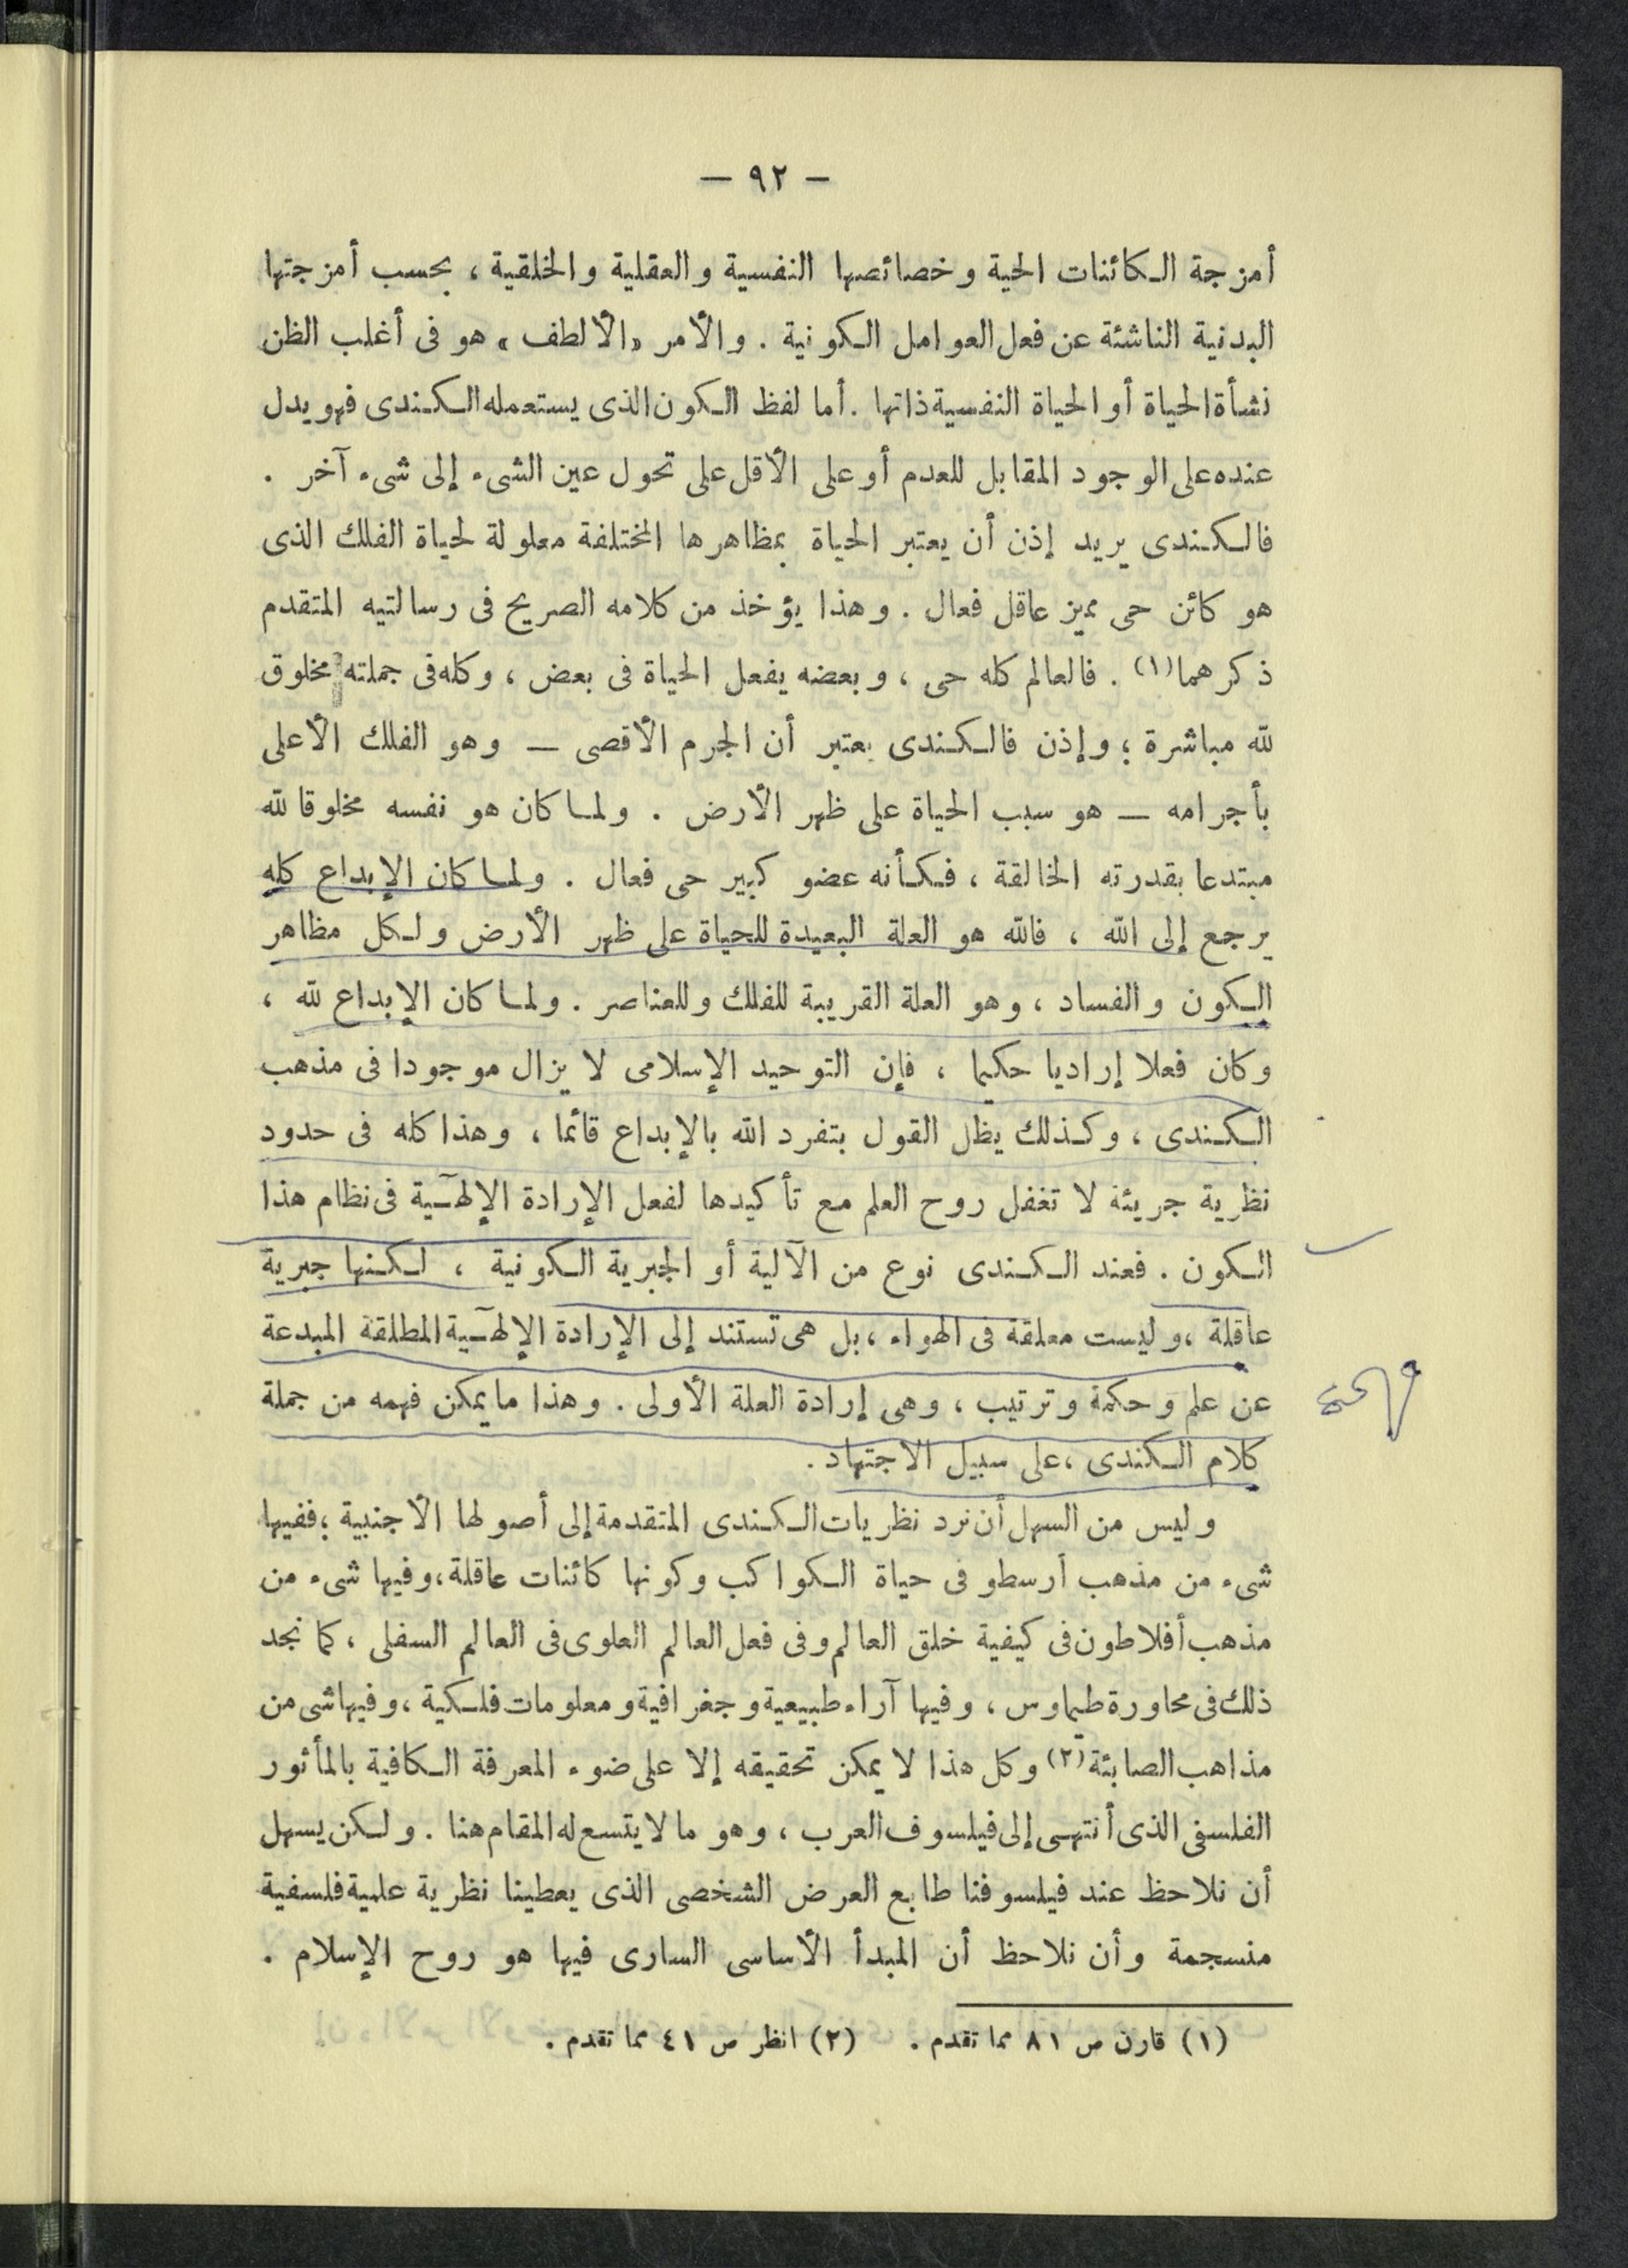 — ٩٢ —
أمزجة الكائنات الحية وخصائصها النفسية والعقلية والخلقية ، بحسب أمزجتها
البدنية الناشئة عن فعل العوامل الكونية . والأمر «الألطف» هو فى أغلب الظن
نشأة الحياة أو الحياة النفسية ذاتها . أما لفظ الكون الذى يستعمله الكندى فهو يدل
عنده على الوجود المقابل للعدم أو على الأقل على تحول عين الشىء إلى شىء آخر .
فالكندى يريد إذن أن يعتبر الحياة بمظاهرها المختلفة معلولة لحياة الفلك الذى
هو كائن حى مميز عاقل فعال . وهذا يؤخذ من كلامه الصريح فى رسالتيه المتقدم
ذكرهما(١) . فالعالم كله حى ، وبعضه يفعل الحياة فى بعض ، وكله فى جملته مخلوق
لله مباشرة ؛ وإذن فالكندى يعتبر أن الجرم الأقصى — وهو الفلك الأعلى
بأجرامه — هو سبب الحياة على ظهر الأرض . ولما كان هو نفسه مخلوقا لله
مبتدعا بقدرته الخالقة ، فكأنه عضو كبير حى فعال . ولما كان الإبداع كله
يرجع إلى الله ، فالله هو العلة البعيدة للحياة على ظهر الأرض ولكل مظاهر
الكون والفساد ، وهو العلة القريبة للفلك وللعناصر . ولما كان الإبداع لله ،
وكان فعلا إراديا حكيما ، فإن التوحيد الإسلامى لا يزال موجودا فى مذهب
الكندى ، وكذلك يظل القول بتفرد الله بالإبداع قائما ، وهذا كله فى حدود
نظرية جريئة لا تغفل روح العلم مع تأكيدها لفعل الإرادة الإلهية فى نظام هذا
الكون . فعند الكندى نوع من الآلية أو الجبرية الكونية ، لكنها جبرية
عاقلة ، وليست معلقة فى الهواء ، بل هى تستند إلى الإرادة الإلهية المطلقة المبدعة
عن علم وحكمة وترتيب ، وهى إرادة العلة الأولى . وهذا ما يمكن فهمه من جملة
كلام الكندى ، على سبيل الاجتهاد .
وليس من السهل أن نرد نظريات الكندى المتقدمة إلى أصولها الأجنبية ؛ ففيها
شىء من مذهب أرسطو فى حياة الكواكب وكونها كائنات عاقلة ، وفيها شىء من
مذهب أفلاطون فى كيفية خلق العالم وفى فعل العالم العلوى فى العالم السفلى ، كما نجد
ذلك فى محاورة طيماوس ، وفيها آراء طبيعية وجغرافية ومعلومات فلكية ، وفيها شى من
مذاهب الصابئة(٢) وكل هذا لا يمكن تحقيقه إلا على ضوء المعرفة الكافية بالمأثور
الفلسفى الذى أنتهى إلى فيلسوف العرب ، وهو ما لا يتسع له المقام هنا . ولكن يسهل
أن نلاحظ عند فيلسوفنا طابع العرض الشخصى الذى يعطينا نظرية علمية فلسفية
منسجمة وأن نلاحظ أن المبدأ الأساسى السارى فيها هو روح الإسلام .
(١) قارن ص ٨١ مما تقدم . (٢) انظر ص ٤١ مما تقدم .